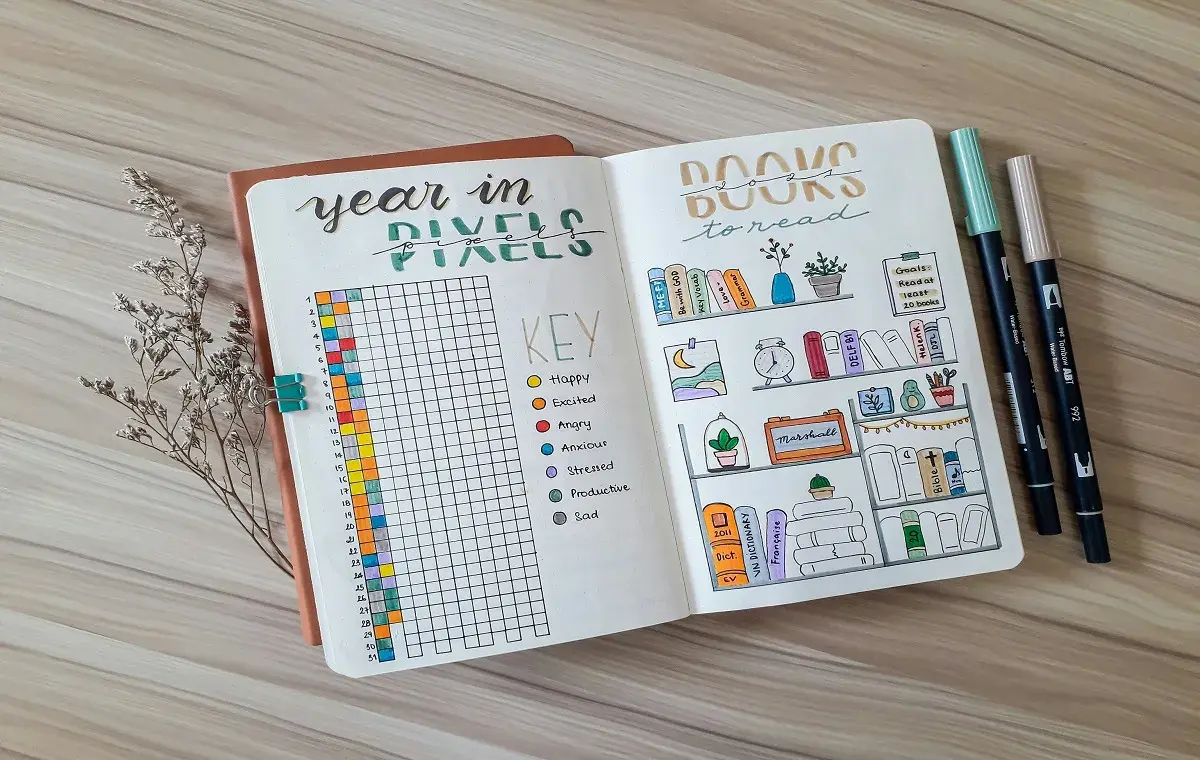 year in
PIXELS
pixels
1
2
3
4
5
6
7
8
9
10
11
12
13
14
15
16
17
18
19
20
21
22
23
24
25
26
27
28
29
30
31
KEY
Happy
Excited
Angry
Anxious
Stressed
Productive
Sad
BOOKS
2021
to read
ME?!
Be with GOD
Key Vocab
Love
Grammar
Goals:
Read at
least
20 books
DELF B1
Marshall
Bible
2011
Dict.
EV
VN DICTIONARY
Française
20
992
ABT